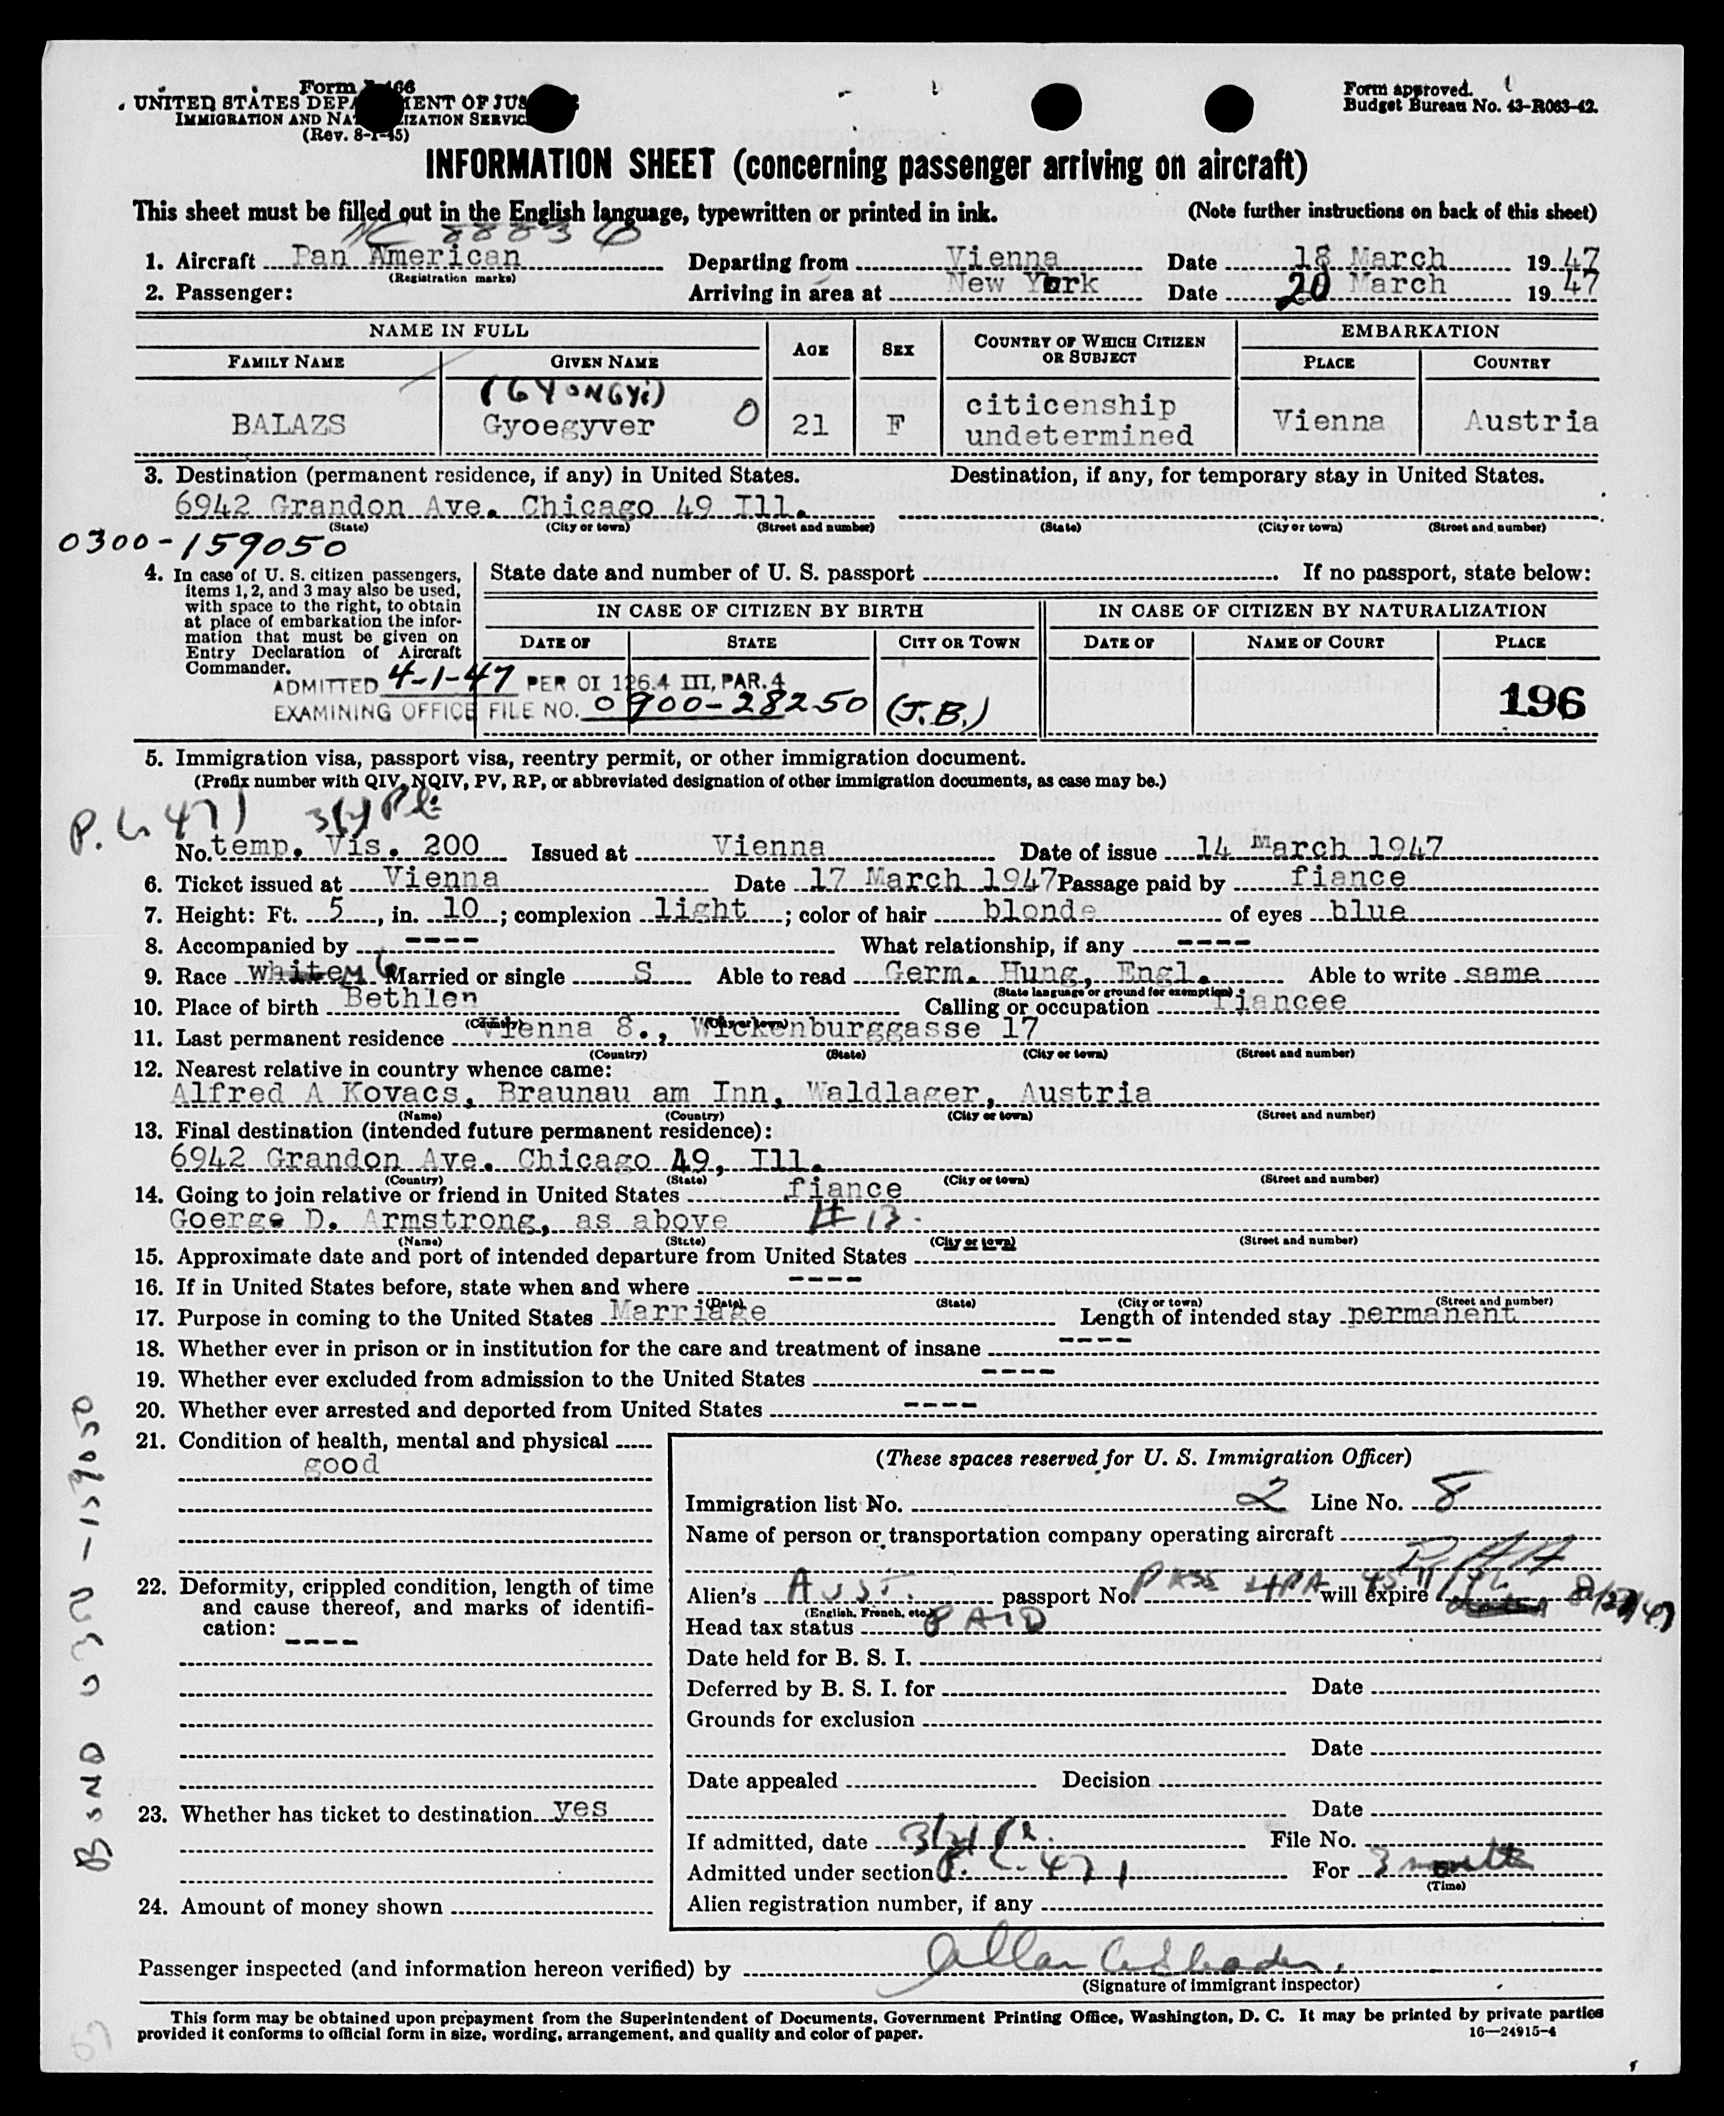 Form I-466
UNITED STATES DEPARTMENT OF JUSTICE
IMMIGRATION AND NATURALIZATION SERVICE
(Rev. 8-1-45)
Form approved.
Budget Bureau No. 43-R063-42.
INFORMATION SHEET (concerning passenger arriving on aircraft)
This sheet must be filled out in the English language, typewritten or printed in ink. (Note further instructions on back of this sheet)
NC 88836
1. Aircraft Pan American Departing from Vienna Date 18 March 1947
(Registration marks)
2. Passenger: Arriving in area at New York Date 20 March 1947
NAME IN FULL AGE SEX COUNTRY OF WHICH CITIZEN OR SUBJECT EMBARKATION
FAMILY NAME GIVEN NAME PLACE COUNTRY
(GYONGYi)
BALAZS Gyoegyver 0 21 F citicenship undetermined Vienna Austria
3. Destination (permanent residence, if any) in United States. Destination, if any, for temporary stay in United States.
6942 Grandon Ave. Chicago 49 Ill.
(State) (City or town) (Street and number) (State) (City or town) (Street and number)
0300-159050
4. In case of U. S. citizen passengers, items 1, 2, and 3 may also be used, with space to the right, to obtain at place of embarkation the information that must be given on Entry Declaration of Aircraft Commander.
State date and number of U. S. passport If no passport, state below:
IN CASE OF CITIZEN BY BIRTH IN CASE OF CITIZEN BY NATURALIZATION
DATE OF STATE CITY OR TOWN DATE OF NAME OF COURT PLACE
ADMITTED 4-1-47 PER OI 126.4 III, PAR. 4
EXAMINING OFFICE FILE NO. 0900-28250 (J.B.) 196
5. Immigration visa, passport visa, reentry permit, or other immigration document.
(Prefix number with QIV, NQIV, PV, RP, or abbreviated designation of other immigration documents, as case may be.)
P. L 471
No. temp. Vis. 200 Issued at Vienna Date of issue 14 March 1947
6. Ticket issued at Vienna Date 17 March 1947 Passage paid by fiance
7. Height: Ft. 5, in. 10; complexion light; color of hair blonde of eyes blue
8. Accompanied by ---- What relationship, if any ----
9. Race white Married or single S Able to read Germ. Hung, Engl. Able to write same
(State language or ground for exemption)
10. Place of birth Bethlen Calling or occupation fiancee
(Country) (City or town)
11. Last permanent residence Vienna 8., Wickenburggasse 17
(Country) (State) (City or town) (Street and number)
12. Nearest relative in country whence came:
Alfred A Kovacs, Braunau am Inn, Waldlager, Austria
(Name) (Country) (City or town) (Street and number)
13. Final destination (intended future permanent residence):
6942 Grandon Ave. Chicago 49, Ill.
(Country) (State) (City or town) (Street and number)
14. Going to join relative or friend in United States fiance
Goerge D. Armstrong, as above # 13.
(Name) (State) (City or town) (Street and number)
15. Approximate date and port of intended departure from United States
16. If in United States before, state when and where ----
(Date) (State) (City or town) (Street and number)
17. Purpose in coming to the United States Marriage Length of intended stay permanent
18. Whether ever in prison or in institution for the care and treatment of insane ----
19. Whether ever excluded from admission to the United States ----
20. Whether ever arrested and deported from United States ----
21. Condition of health, mental and physical
good
22. Deformity, crippled condition, length of time and cause thereof, and marks of identification: ----
23. Whether has ticket to destination yes
24. Amount of money shown
(These spaces reserved for U. S. Immigration Officer)
Immigration list No. 2 Line No. 8
Name of person or transportation company operating aircraft
PAA
Alien's AUST. passport No. will expire 8/27/47
(English, French, etc.)
Head tax status PAID
Date held for B. S. I.
Deferred by B. S. I. for Date
Grounds for exclusion
Date
Date appealed Decision
Date
If admitted, date File No.
Admitted under section P. L. 471 For 3 months
(Time)
Alien registration number, if any
BOND 0300-159050
Passenger inspected (and information hereon verified) by
(Signature of immigrant inspector)
This form may be obtained upon prepayment from the Superintendent of Documents, Government Printing Office, Washington, D. C. It may be printed by private parties
provided it conforms to official form in size, wording, arrangement, and quality and color of paper. 16—24915-4